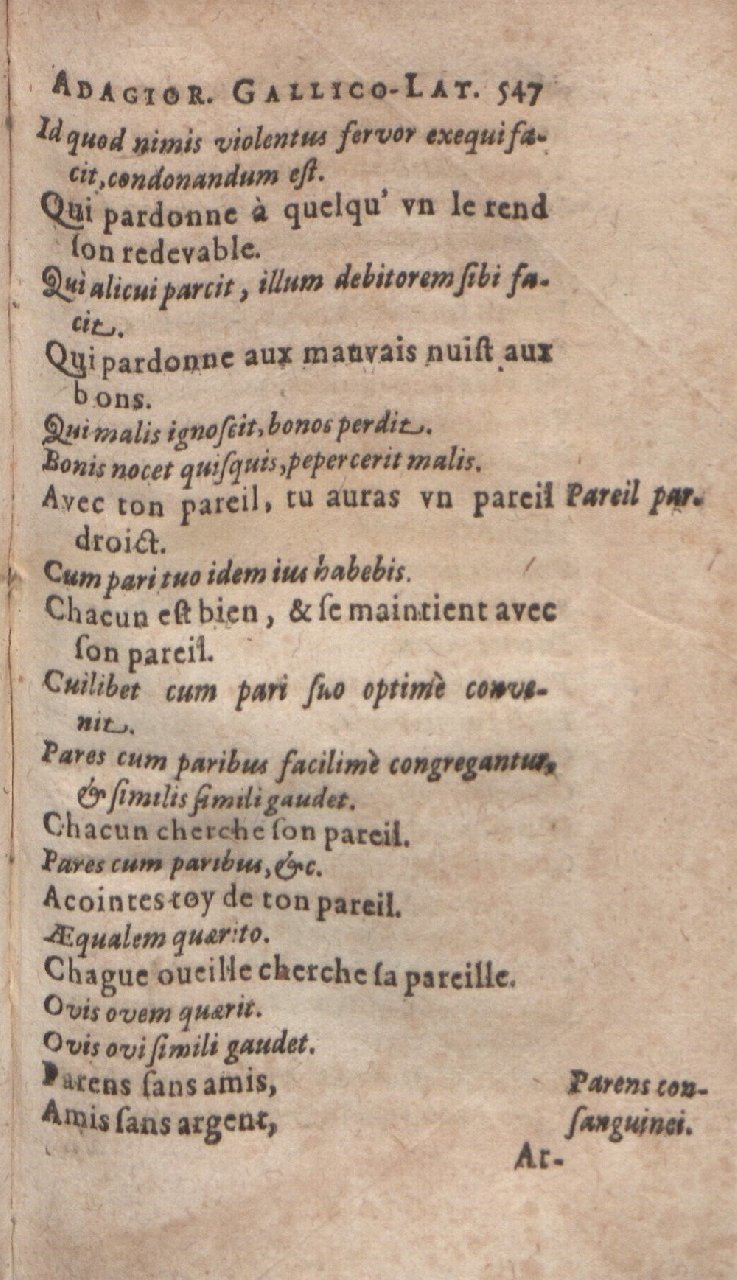 ADAGIOR. GALLICO-LAT. 547
Id quod nimis violentus fervor exequi fa-
cit, condonandum eſt.
Qui pardonne à quelqu' vn le rend
ſon redevable.
Qui alicui parcit, illum debitorem ſibi fa-
cit.
Qui pardonne aux mauvais nuiſt aux
bons.
Qui malis ignoſcit, bonos perdit.
Bonis nocet quiſquis, pepercerit malis.
Avec ton pareil, tu auras vn pareil Pareil par.
droict.
Cum pari tuo idem ius habebis.
Chacun eſt bien, & ſe maintient avec
ſon pareil.
Cuilibet cum pari ſuo optimè conve-
nit.
Pares cum paribus facilimè congregantur,
& ſimilis ſimili gaudet.
Chacun cherche ſon pareil.
Pares cum paribus, &c.
Acointes toy de ton pareil.
Æqualem quærito.
Chague oueille cherche ſa pareille.
Ovis ovem quærit.
Ovis ovi ſimili gaudet.
Parens ſans amis, Parens con-
Amis ſans argent, ſanguinei.
Ar-